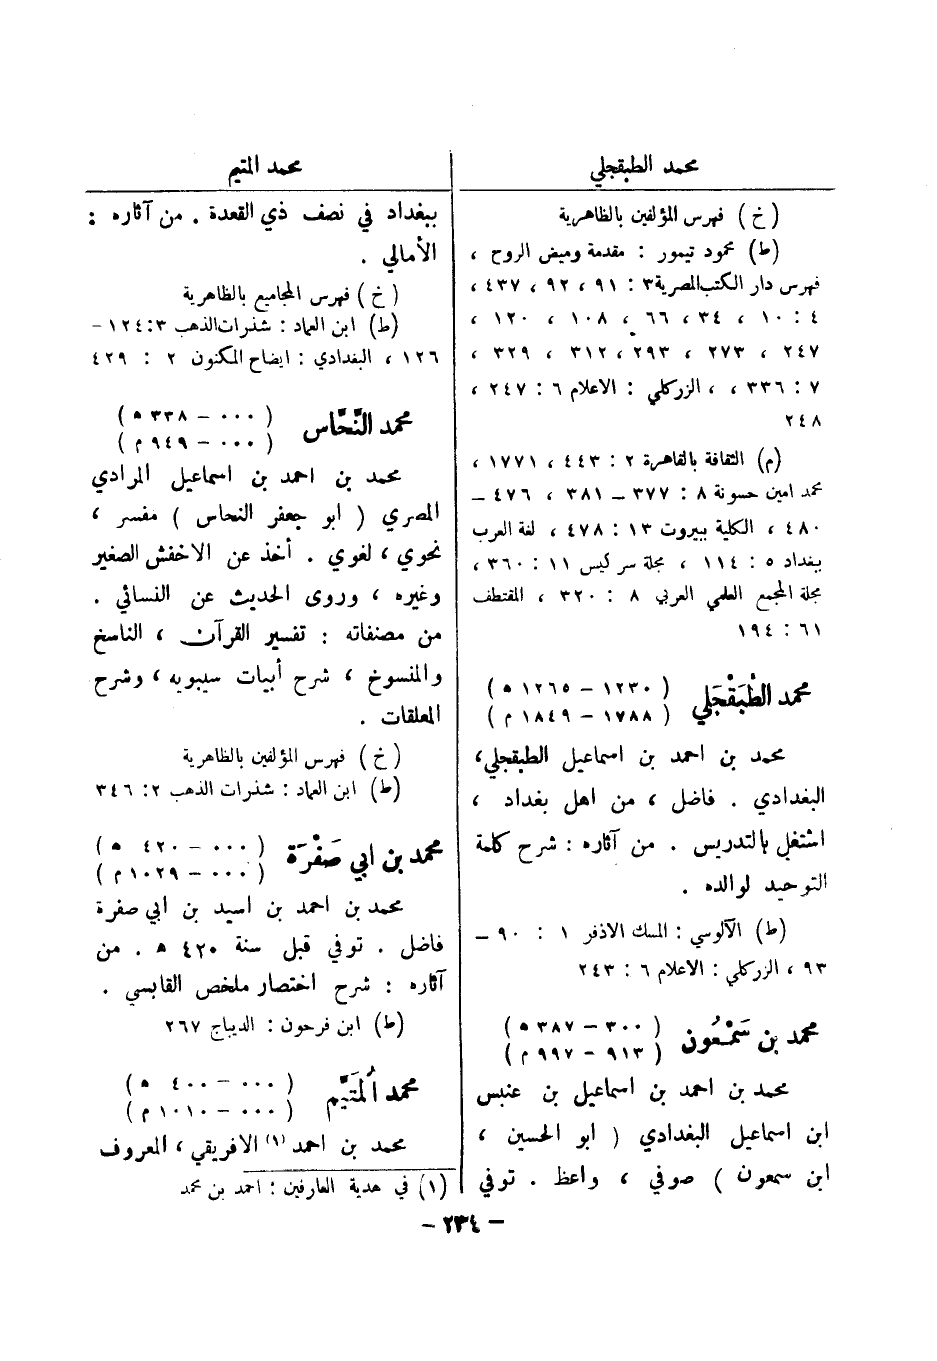 محمد الطبقجلي
(خ) فهرس المؤلفين بالظاهرية
(ط) محمود تيمور : مقدمة وميض الروح ،
فهرس دار الكتب المصرية ٣ : ٩١ ، ٩٢ ، ٤٣٧ ،
٤ : ١٠ ، ٣٤ ، ٦٦ ، ١٠٨ ، ١٢٠ ،
٢٤٧ ، ٢٧٣ ، ٢٩٣ ، ٣١٢ ، ٣٢٩ ،
٧ : ٣٣٦ ، ، الزركلي : الاعلام ٦ : ٢٤٧ ،
٢٤٨
(م) الثقافة بالقاهرة ٢ : ٤٤٣ ، ١٧٧١ ،
محمد امين حسونة ٨ : ٣٧٧ – ٣٨١ ، ٤٧٦ –
٤٨٠ ، الكلية ببيروت ١٣ : ٤٧٨ ، لغة العرب
ببغداد ٥ : ١١٤ ، مجلة سركيس ١١ : ٣٦٠ ،
مجلة المجمع العلمي العربي ٨ : ٣٢٠ ، المقتطف
٦١ : ١٩٤
محمد الطَّبَقْجَلي ( ١٢٣٠ – ١٢٦٥ ه )
( ١٧٨٨ – ١٨٤٩ م )
محمد بن احمد بن اسماعيل الطبقجلي،
البغدادي . فاضل ، من اهل بغداد ،
اشتغل بالتدريس . من آثاره : شرح كلمة
التوحيد لوالده .
(ط) الآلوسي : المسك الاذفر ١ : ٩٠ –
٩٣ ، الزركلي : الاعلام ٦ : ٢٤٣
محمد بن سَمْعُون ( ٣٠٠ – ٣٨٧ ه )
( ٩١٣ – ٩٩٧ م )
محمد بن احمد بن اسماعيل بن عنبس
ابن اسماعيل البغدادي ( ابو الحسين ،
ابن سمعون ) صوفي ، واعظ . توفي
محمد المتيم
ببغداد في نصف ذي القعدة . من آثاره :
الأمالي .
(خ) فهرس المجاميع بالظاهرية
(ط) ابن العماد : شذرات الذهب ٣ : ١٢٤ –
١٢٦ ، البغدادي : ايضاح المكنون ٢ : ٤٢٩
محمد النَّحَّاس ( ٠٠٠ – ٣٣٨ ه )
( ٠٠٠ – ٩٤٩ م )
محمد بن احمد بن اسماعيل المرادي
المصري ( ابو جعفر النحاس ) مفسر ،
نحوي ، لغوي . أخذ عن الاخفش الصغير
وغيره ، وروى الحديث عن النسائي .
من مصنفاته : تفسير القرآن ، الناسخ
والمنسوخ ، شرح أبيات سيبويه ، وشرح
المعلقات .
(خ) فهرس المؤلفين بالظاهرية
(ط) ابن العماد : شذرات الذهب ٢ : ٣٤٦
محمد بن ابي صَفْرَة ( ٠٠٠ – ٤٢٠ ه )
( ٠٠٠ – ١٠٢٩ م )
محمد بن احمد بن اسيد بن ابي صفرة
فاضل . توفي قبل سنة ٤٢٠ ه . من
آثاره : شرح اختصار ملخص القابسي .
(ط) ابن فرحون : الديباج ٢٦٧
محمد المُتَيَّم ( ٠٠٠ – ٤٠٠ ه )
( ٠٠٠ – ١٠١٠ م )
محمد بن احمد (١) الافريقي ، المعروف
(١) في هدية العارفين : احمد بن محمد
– ٢٣٤ –